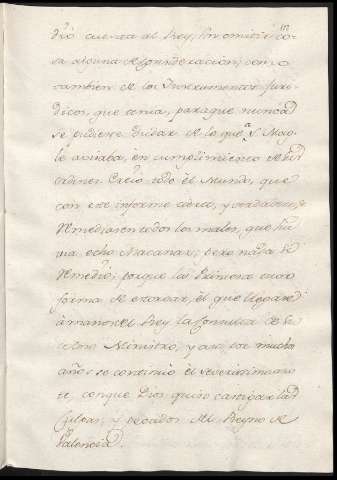 dió cuenta al Rey, sin omitir co-
sa alguna de consideracion, como
tambien de los Instrumentos juri-
dicos, que tenia, para que nunca
se pudiese dudar de lo que à S. Mag.
le avisaba, en cumplimiento de sus
ordenes. Creió todo el Mundo, que
con este informe cierto, y verdadero, se
remediasen todos los males, que ha-
via echo Macanaz; pero nada se
remedió; porque la Princesa
forma de estorvar, el que llegase
à manos del Rey la Consulta de
Ministro, y assi por muchos
años se continuó el
te, con que Dios quiso castigar las
Culpas, y pecados del Reyno de
Valencia.